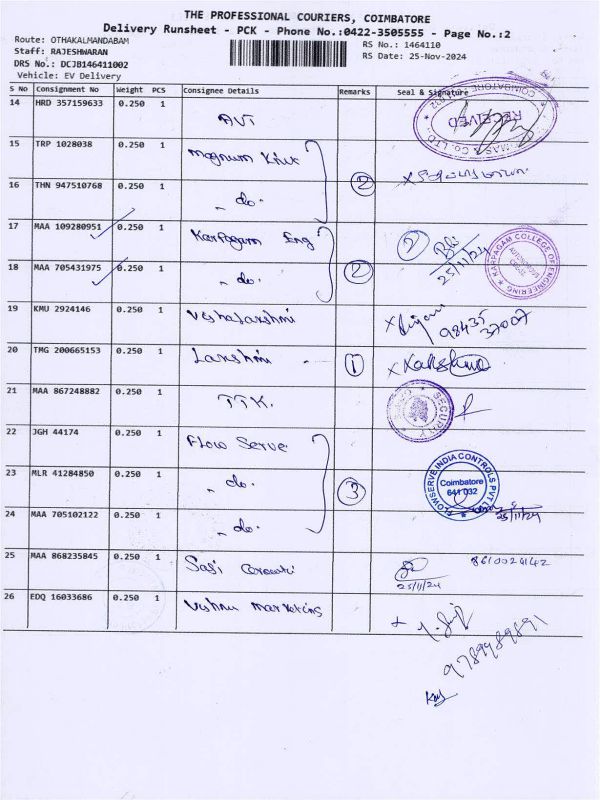 THE PROFESSIONAL COURIERS, COIMBATORE
Delivery Runsheet - PCK - Phone No.:0422-3505555 - Page No.:2
Route: OTHAKALMANDABAM
RS No.: 1464110
Staff: RAJESHWARAN
RS Date: 25-Nov-2024
DRS No.: DCJB146411002
Vehicle: EV Delivery
S No Consignment No Weight PCS Consignee Details Remarks Seal & Signature
14 HRD 357159633 0.250 1 AVT
RECEIVED
15 TRP 1028038 0.250 1 Magnum
16 THN 947510768 0.250 1 - do - 2
17 MAA 109280951 0.250 1 Karpagam Eng 2 25/11/24
KARPAGAM COLLEGE OF ENGINEERING
18 MAA 705431975 0.250 1 - do - 2
19 KMU 2924146 0.250 1 98435 37007
20 TMG 200665153 0.250 1 Lakshmi - 1
21 MAA 867248882 0.250 1 TTK.
SECURITY
22 JGH 44174 0.250 1 Flow Serve
23 MLR 41284850 0.250 1 - do - 3
FLOWSERVE INDIA CONTROLS PVT LTD
Coimbatore
641 032
24 MAA 705102122 0.250 1 - do - 25/11/24
25 MAA 868235845 0.250 1 Sasi 25/11/24
26 EDQ 16033686 0.250 1 Vishnu Marketing
9789989891